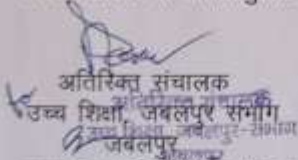 अतिरिक्त संचालक
उच्च शिक्षा, जबलपुर संभाग
जबलपुर